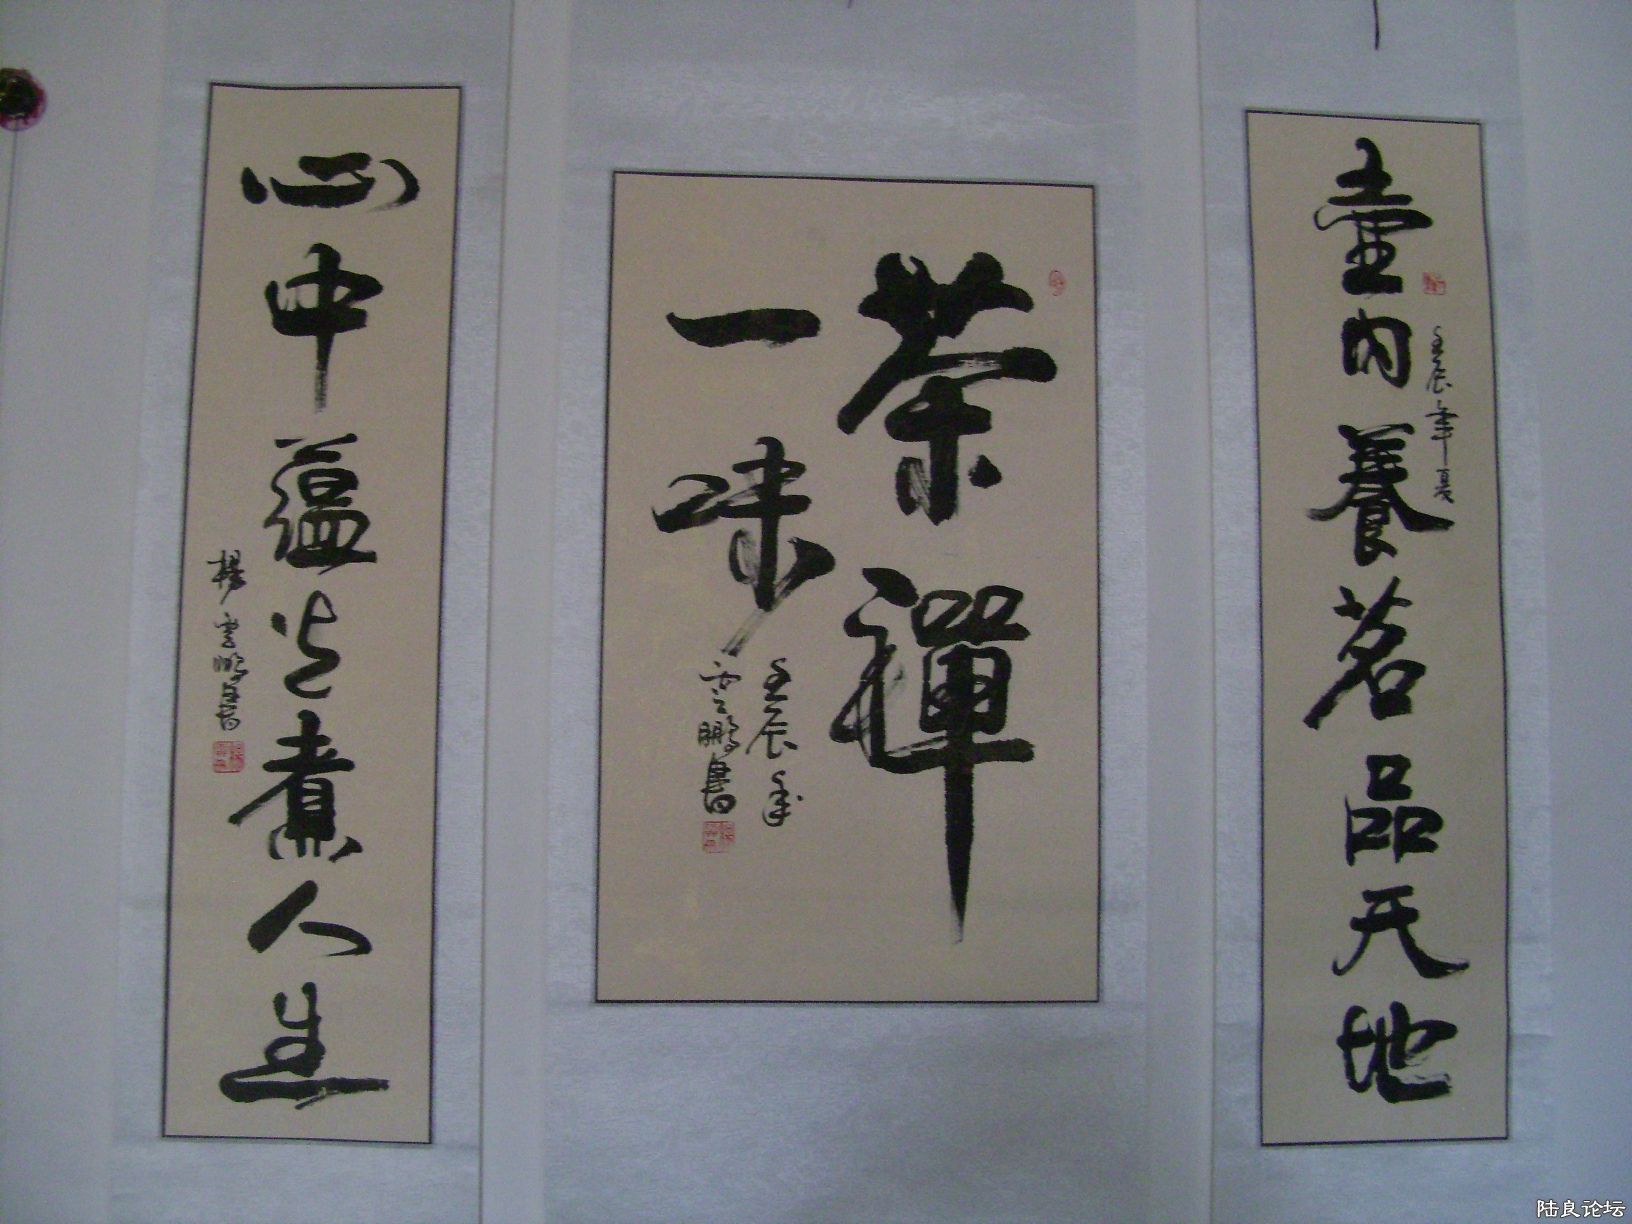 壺内養茗品天地
壬辰年夏
茶禪
一味
壬辰年
雲鵬書
心中蘊光煮人生
楊雲鵬書
陆良论坛